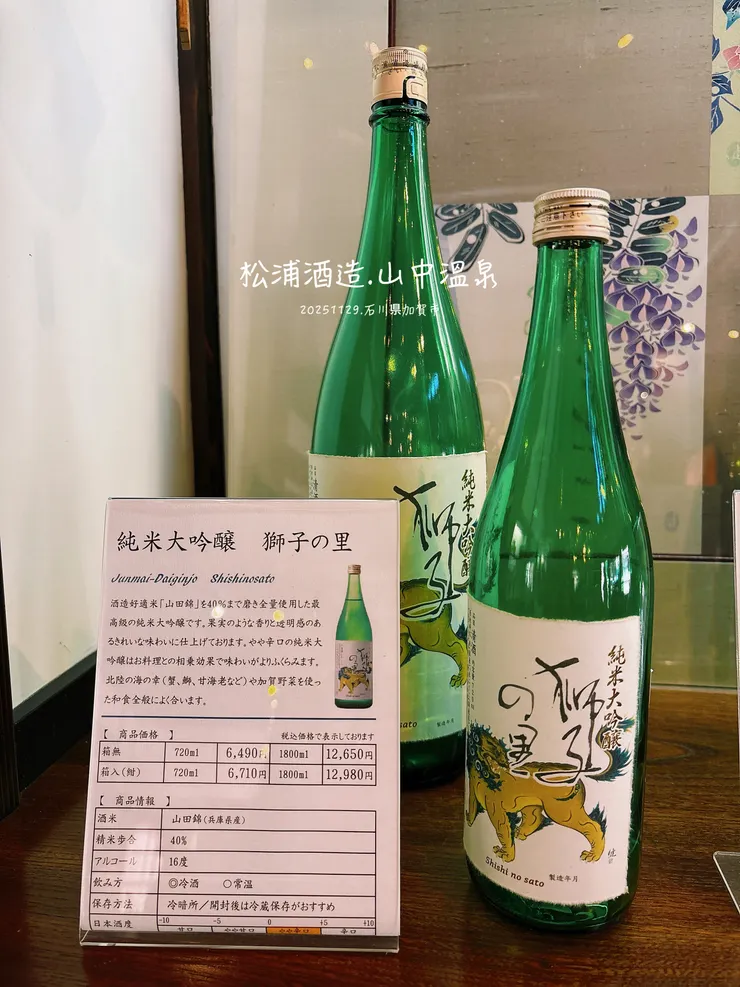 松浦酒造.山中温泉
20251129.石川県加賀市
ご注意下さい
純米大吟醸
獅子
純米大吟醸
獅子の里
Shishi no sato
製造年月
純米大吟醸 獅子の里
Junmai-Daiginjo Shishinosato
酒造好適米「山田錦」を40%まで磨き全量使用した最
高級の純米大吟醸です。果実のような香りと透明感のあ
るきれいな味わいに仕上げております。やや辛口の純米大
吟醸はお料理との相乗効果で味わがよりふくらみます。
北陸の海の幸(蟹、鰤、甘海老など)や加賀野菜を使っ
た和食全般によく合います。
【 商品価格 】 税込価格で表示しております
箱無 720ml 6,490円 1800ml 12,650円
箱入(紺) 720ml 6,710円 1800ml 12,980円
【 商品情報 】
酒米 山田錦(兵庫県産)
精米歩合 40%
アルコール 16度
飲み方 ◎冷酒 ○常温
保存方法 冷暗所/開封後は冷蔵保存がおすすめ
日本酒度 -10 -5 0 +5 +10
甘口 やや甘口 やや辛口 辛口
sato
製造年月